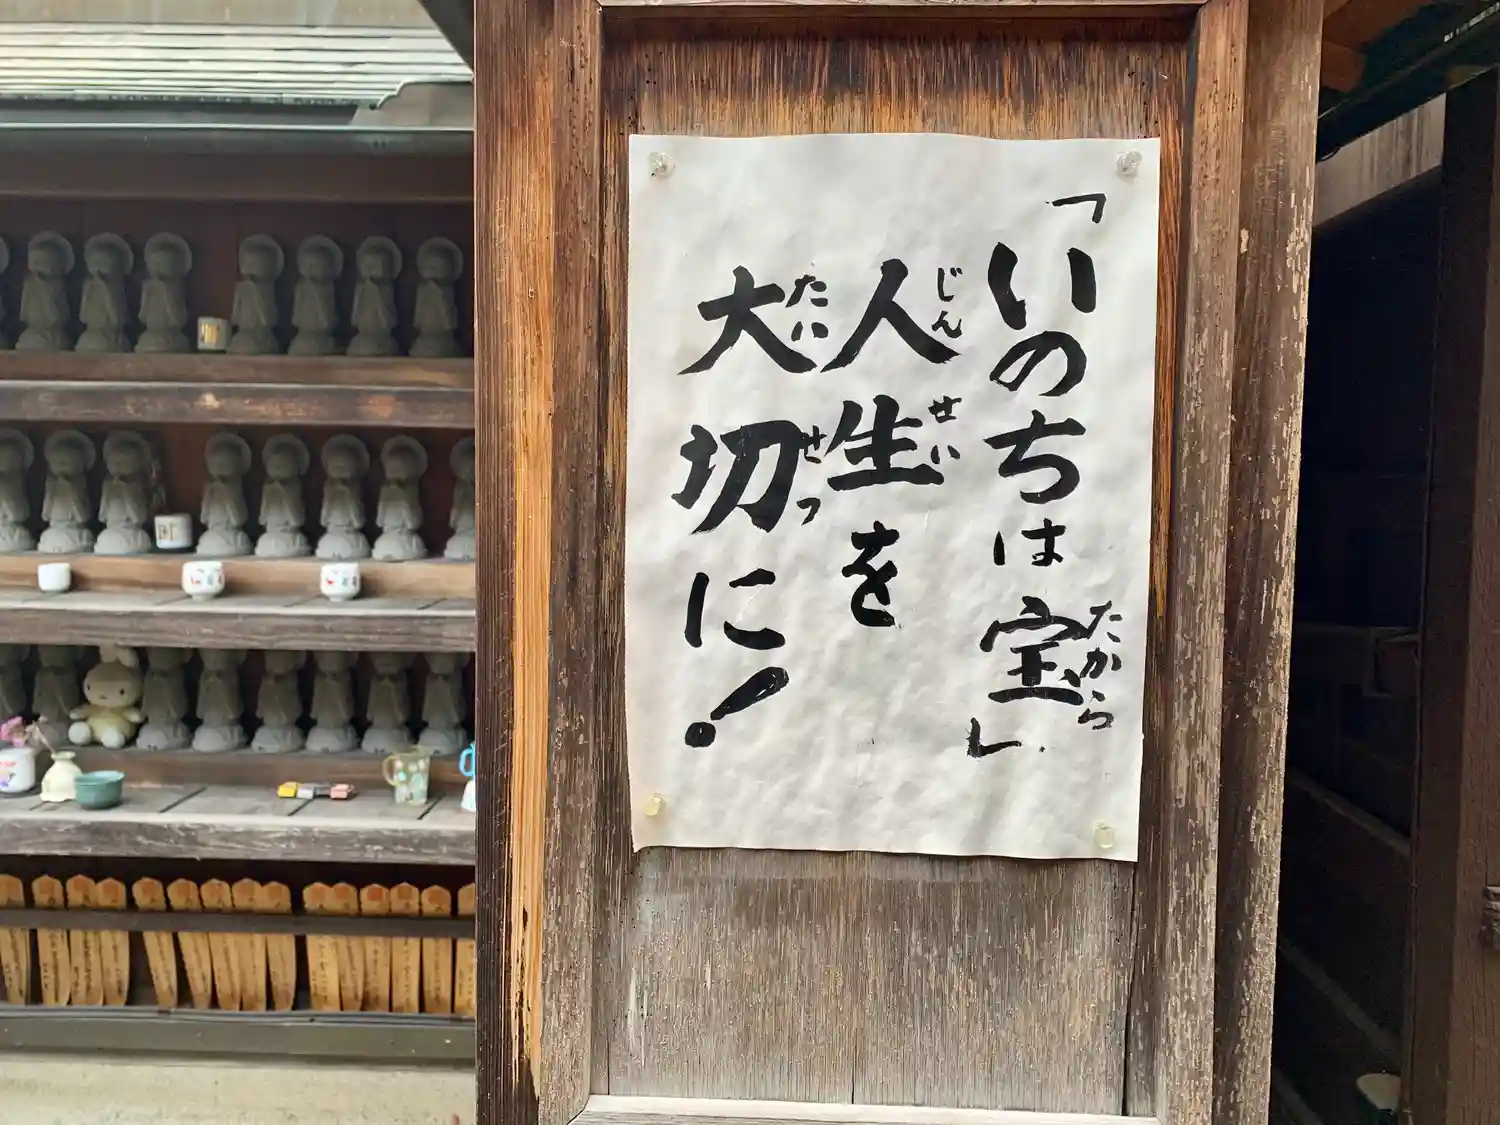 「いのちは宝」
たから
人生を
じんせい
大切に!
たいせつ